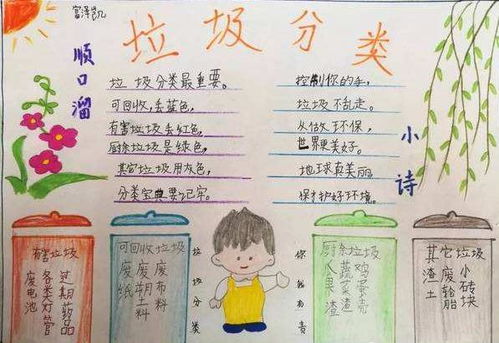 富泽凯
垃圾分类
顺口溜
垃圾分类最重要。
可回收,丢蓝色,
有害垃圾丢红色,
厨余垃圾是绿色,
其它垃圾用灰色,
分类宝典要记牢。
小诗
控制你的手,
垃圾不乱走。
从做环保,
世界更美好。
地球真美丽
保护好环境。
有害垃圾
过期药品
各类灯管
废电池
可回收垃圾
废布料
废塑料
废纸
垃圾分类
你我有责
厨余垃圾
鸡蛋壳
蔬菜渣
瓜果渣
其它垃圾
小砖块
废轮胎
渣土